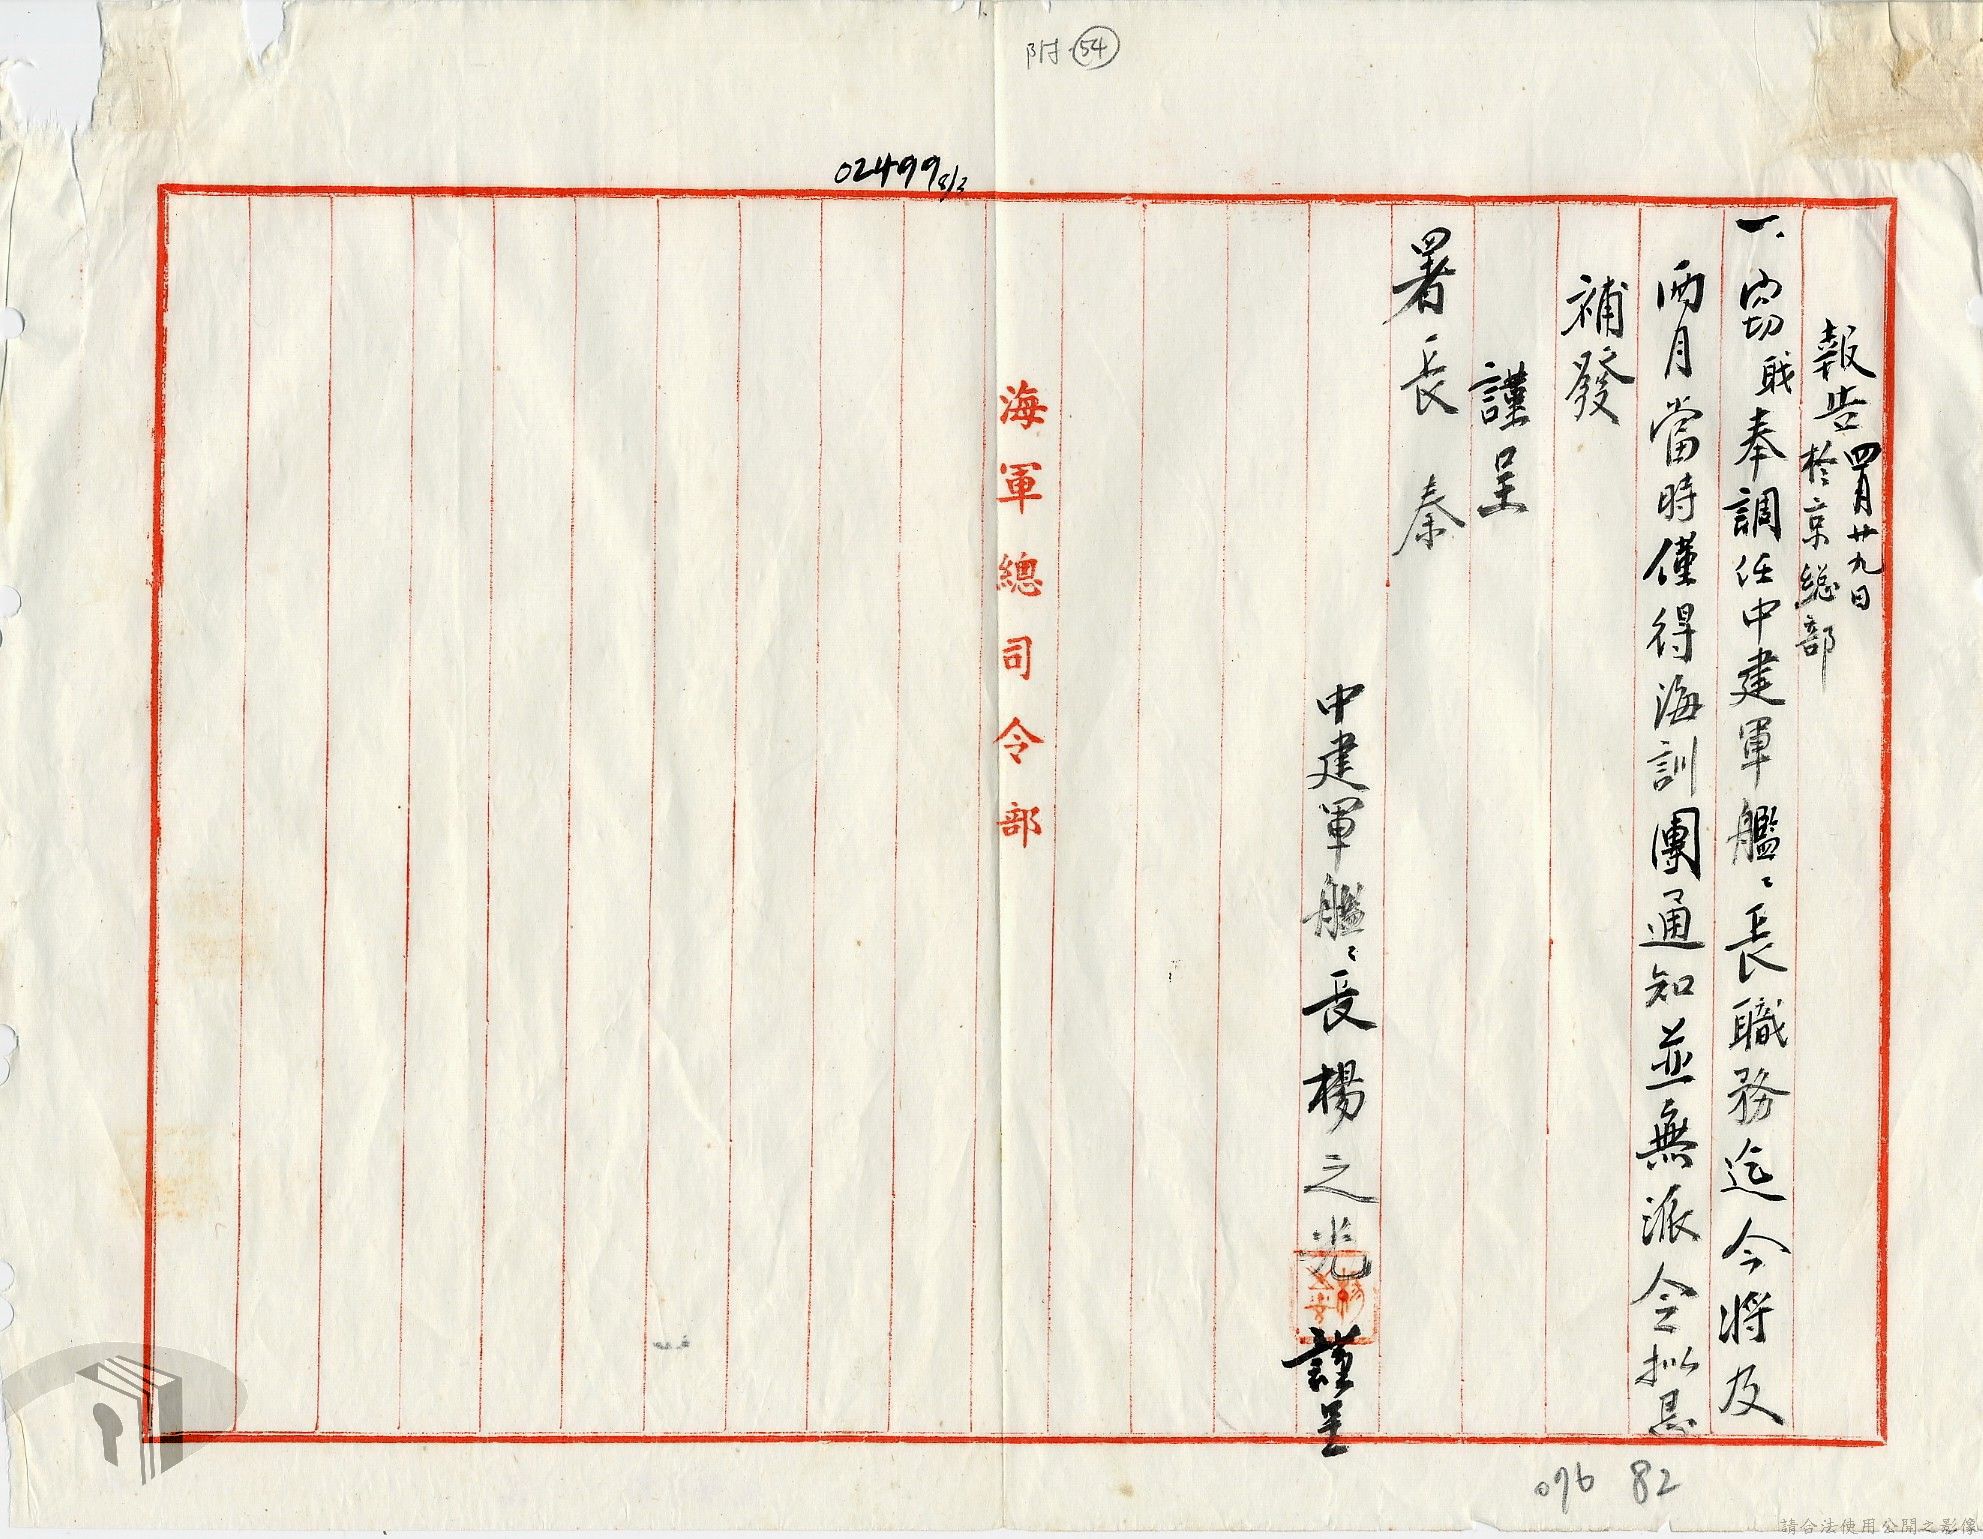 附 54
02499
報告 四月廿九日
於京總部
一、竊職奉調任中建軍艦〻長職務迄今將及
兩月當時僅得海訓團通知並無派令擬懇
補發
謹呈
署長 秦
中建軍艦〻長楊之光 謹呈
海軍總司令部
076 82
請合法使用公開之影像